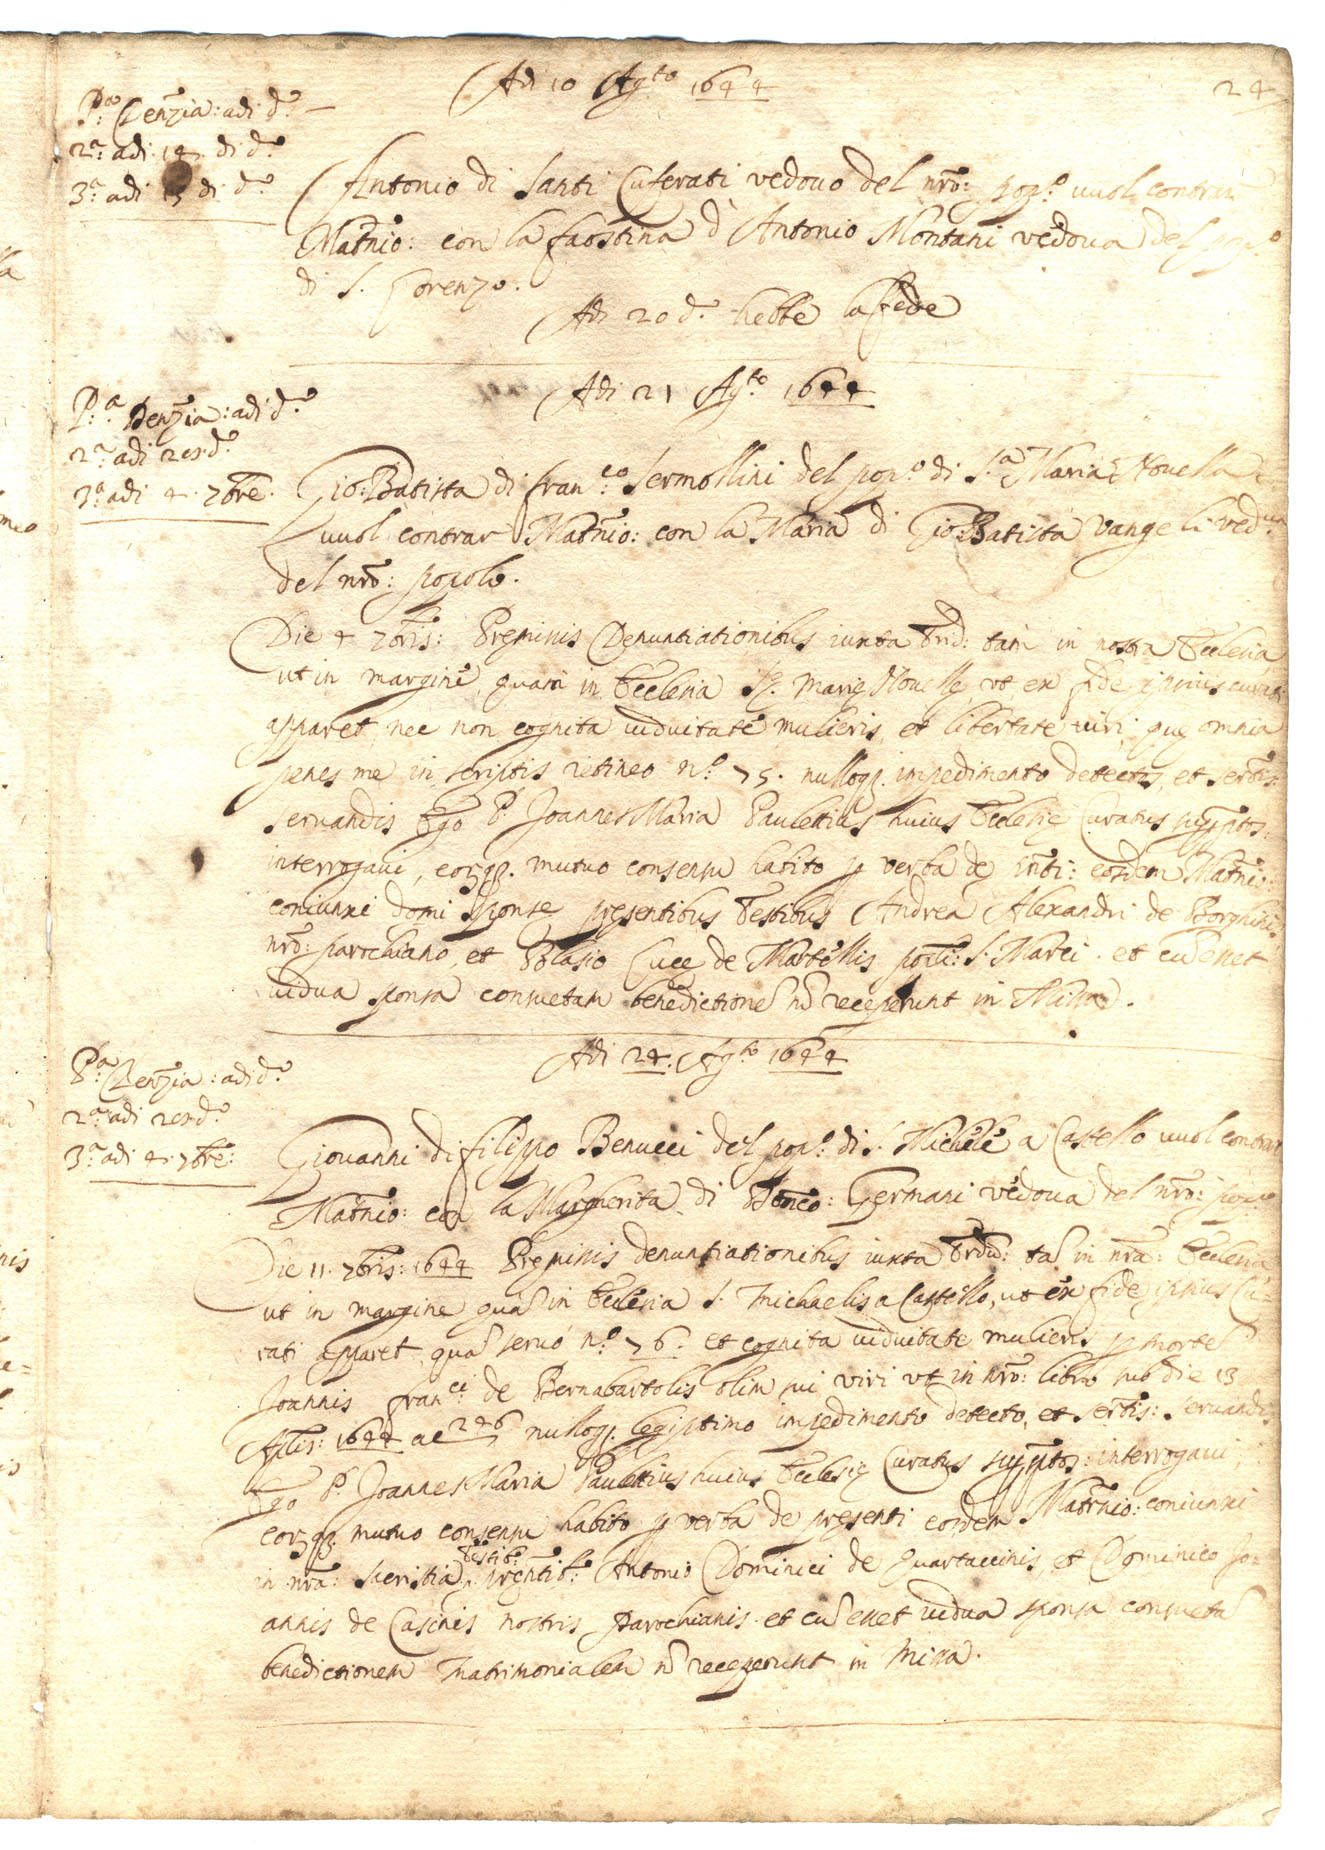 Adi 10 Ag.to 1644
24
P.a Denzia: adi d.o
2.a adi 14. di d.o
3.a adi 15 di d.o
Antonio di Santi Cuserati vedouo del nro: pop.o uuol contrar
Matnio: con la faostina d'Antonio Montani vedoua del pop.o
di S. Lorenzo.
Adi 20 d.o hebbe la fede
Adi 21 Ag.to 1644
P.a Denzia: adi d.o
2.a adi 28 d.o
3.a adi 4. 7bre.
Gio: Batista di fran.co Sermollini del pop.o di S.a Maria Nouella
uuol contrar Matnio: con la Maria di Gio: Batista Vangeli ved.ua
del nro: popolo.
Die 4 7bris: Premissis Denuntiationibus iuxta Trid: tam in nostra Ecclesia
ut in margine, quam in Ecclesia S.ę Marię Nouellę vt ex fide ipsius curati
apparet, nec non cognita viduitate mulieris, et libertate viri, quę omnia
penes me in scriptis retineo n.o 75. nulloq. impedimento detecto, et sertis:
seruandis Ego P. Joannes Maria Paulettius huius Ecclesię Curatus supptos:
interrogaui, eorqq. mutuo consensu habito p verba de pnti: eosdem Matnio:
coniunxi domi sponsę presentibus Testibus Andrea Alexandri de Borghini
nro: parochiano, et Blasio Lucę de Martellis popli: S. Marci. et cũ esset
vidua sponsa consuetam benedictionẽ nõ receperunt in Missa.
Adi 24. Ag.to 1644
P.a Denzia: adi d.o
2.a adi 28 d.o
3.a adi 4. 7bre:
Giouanni di filippo Benucci del pop.o di S. Michele a Castello uuol contrar
Matnio: con la Margherita di Bmeo: Germani vedoua del nro: pop.o
Die 11. 7bris: 1644 Premissis denuntiationibus iuxta Trdũ: tã in nra: Ecclesia
ut in margine quã in Ecclesia S. Michaelis a Castello, ut ex fide ipsius Cu-
rati apparet quã seruo n.o 76. et cognita viduitate mulieris p mortẽ
Joannis fran.ci de Bernabartolis olim sui viri vt in nro: libro sub die 13
Aplis: 1644 ac 246 nulloq. legiptimo impedimento detecto, et sertis: seruandis
Ego P. Joannes Maria Paulettius huius Ecclesię Curatus supptos: interrogaui,
eorqq. mutuo consensu habito p verba de presenti eosdem Matrnio: coniunxi
in nra: sacristia, pręntib: Testib: Antonio Dominici de Quartaccinis, et Dominico Jo-
annis de Casinis nostris Parochianis. et cũ esset vidua sponsa consuetã
benedictionem Matrimonialem nõ receperunt in Missa.